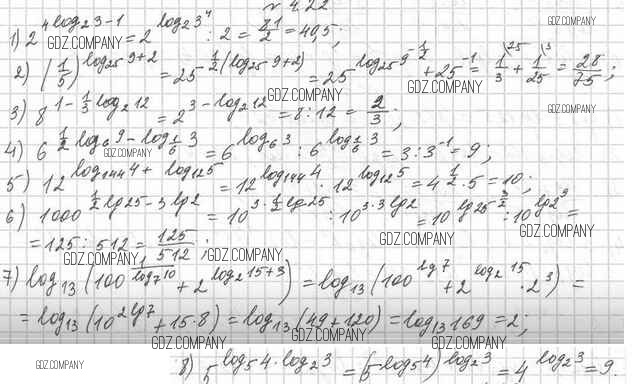 № 4.22
1) 2^{4log_2 3-1} = 2^{log_2 3^4} : 2 = 81/2 = 40,5;
GDZ.COMPANY
GDZ.COMPANY
2) (1/5)^{log_{25} 9+2} = 25^{-1/2(log_{25} 9+2)} = 25^{log_{25} 9^{-1/2}} + 25^{-1} = 1/3 + 1/25 = 28/75;
GDZ.COMPANY GDZ.COMPANY
3) 8^{1-1/3 log_2 12} = 2^{3-log_2 12} = 8:12 = 2/3;
GDZ.COMPANY
4) 6^{1/2 log_6 9 - log_{1/6} 3} = 6^{log_6 3} : 6^{log_{1/6} 3} = 3:3^{-1} = 9;
GDZ.COMPANY
5) 12^{log_{144} 4 + log_{12} 5} = 12^{log_{144} 4} · 12^{log_{12} 5} = 4^{1/2}·5 = 10;
6) 1000^{1/2 lg25-3lg2} = 10^{3·1/2 lg25} : 10^{3·3lg2} = 10^{lg25^{3/2}} : 10^{lg2^9} =
= 125 : 512 = 125/512;
GDZ.COMPANY GDZ.COMPANY GDZ.COMPANY GDZ.COMPANY
7) log_{13}(100^{1/log_7 10} + 2^{log_2 15+3}) = log_{13}(100^{lg7} + 2^{log_2 15}·2^3) =
= log_{13}(10^{2lg7} + 15·8) = log_{13}(49+120) = log_{13}169 = 2;
GDZ.COMPANY GDZ.COMPANY GDZ.COMPANY
GDZ.COMPANY
8) 5^{log_5 4·log_2 3} = (5^{log_5 4})^{log_2 3} = 4^{log_2 3} = 9.